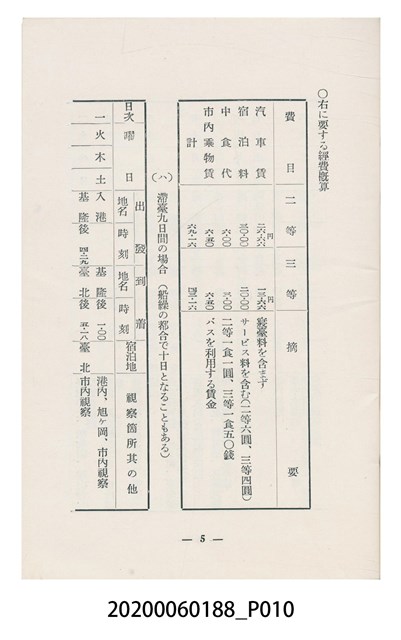 〇右に要する經費概算
費目 二等 三等 摘要
汽車賃 二六・六六円 一三・六六円 寢臺料を含まず
宿泊料 三〇・〇〇 二〇・〇〇 サービス料を含む(二等六圓、三等四圓)
中食代 六・〇〇 三・〇〇 二等一食一圓、三等一食五〇錢
市内乘物賃 六・五〇 六・五〇 バスを利用する賃金
計
(ハ) 滯臺九日間の場合 (船繰の都合で十日となることもある)
日次 曜日 出發 地名 時刻 到着 地名 時刻 宿泊地 視察箇所其の他
一 火木土 入港 基隆 後 一・〇〇 港内、旭ヶ岡、市内視察
基隆 後 四・二九 臺北 後 五・一八 臺北 市内視察
— 5 —
20200060188_P010